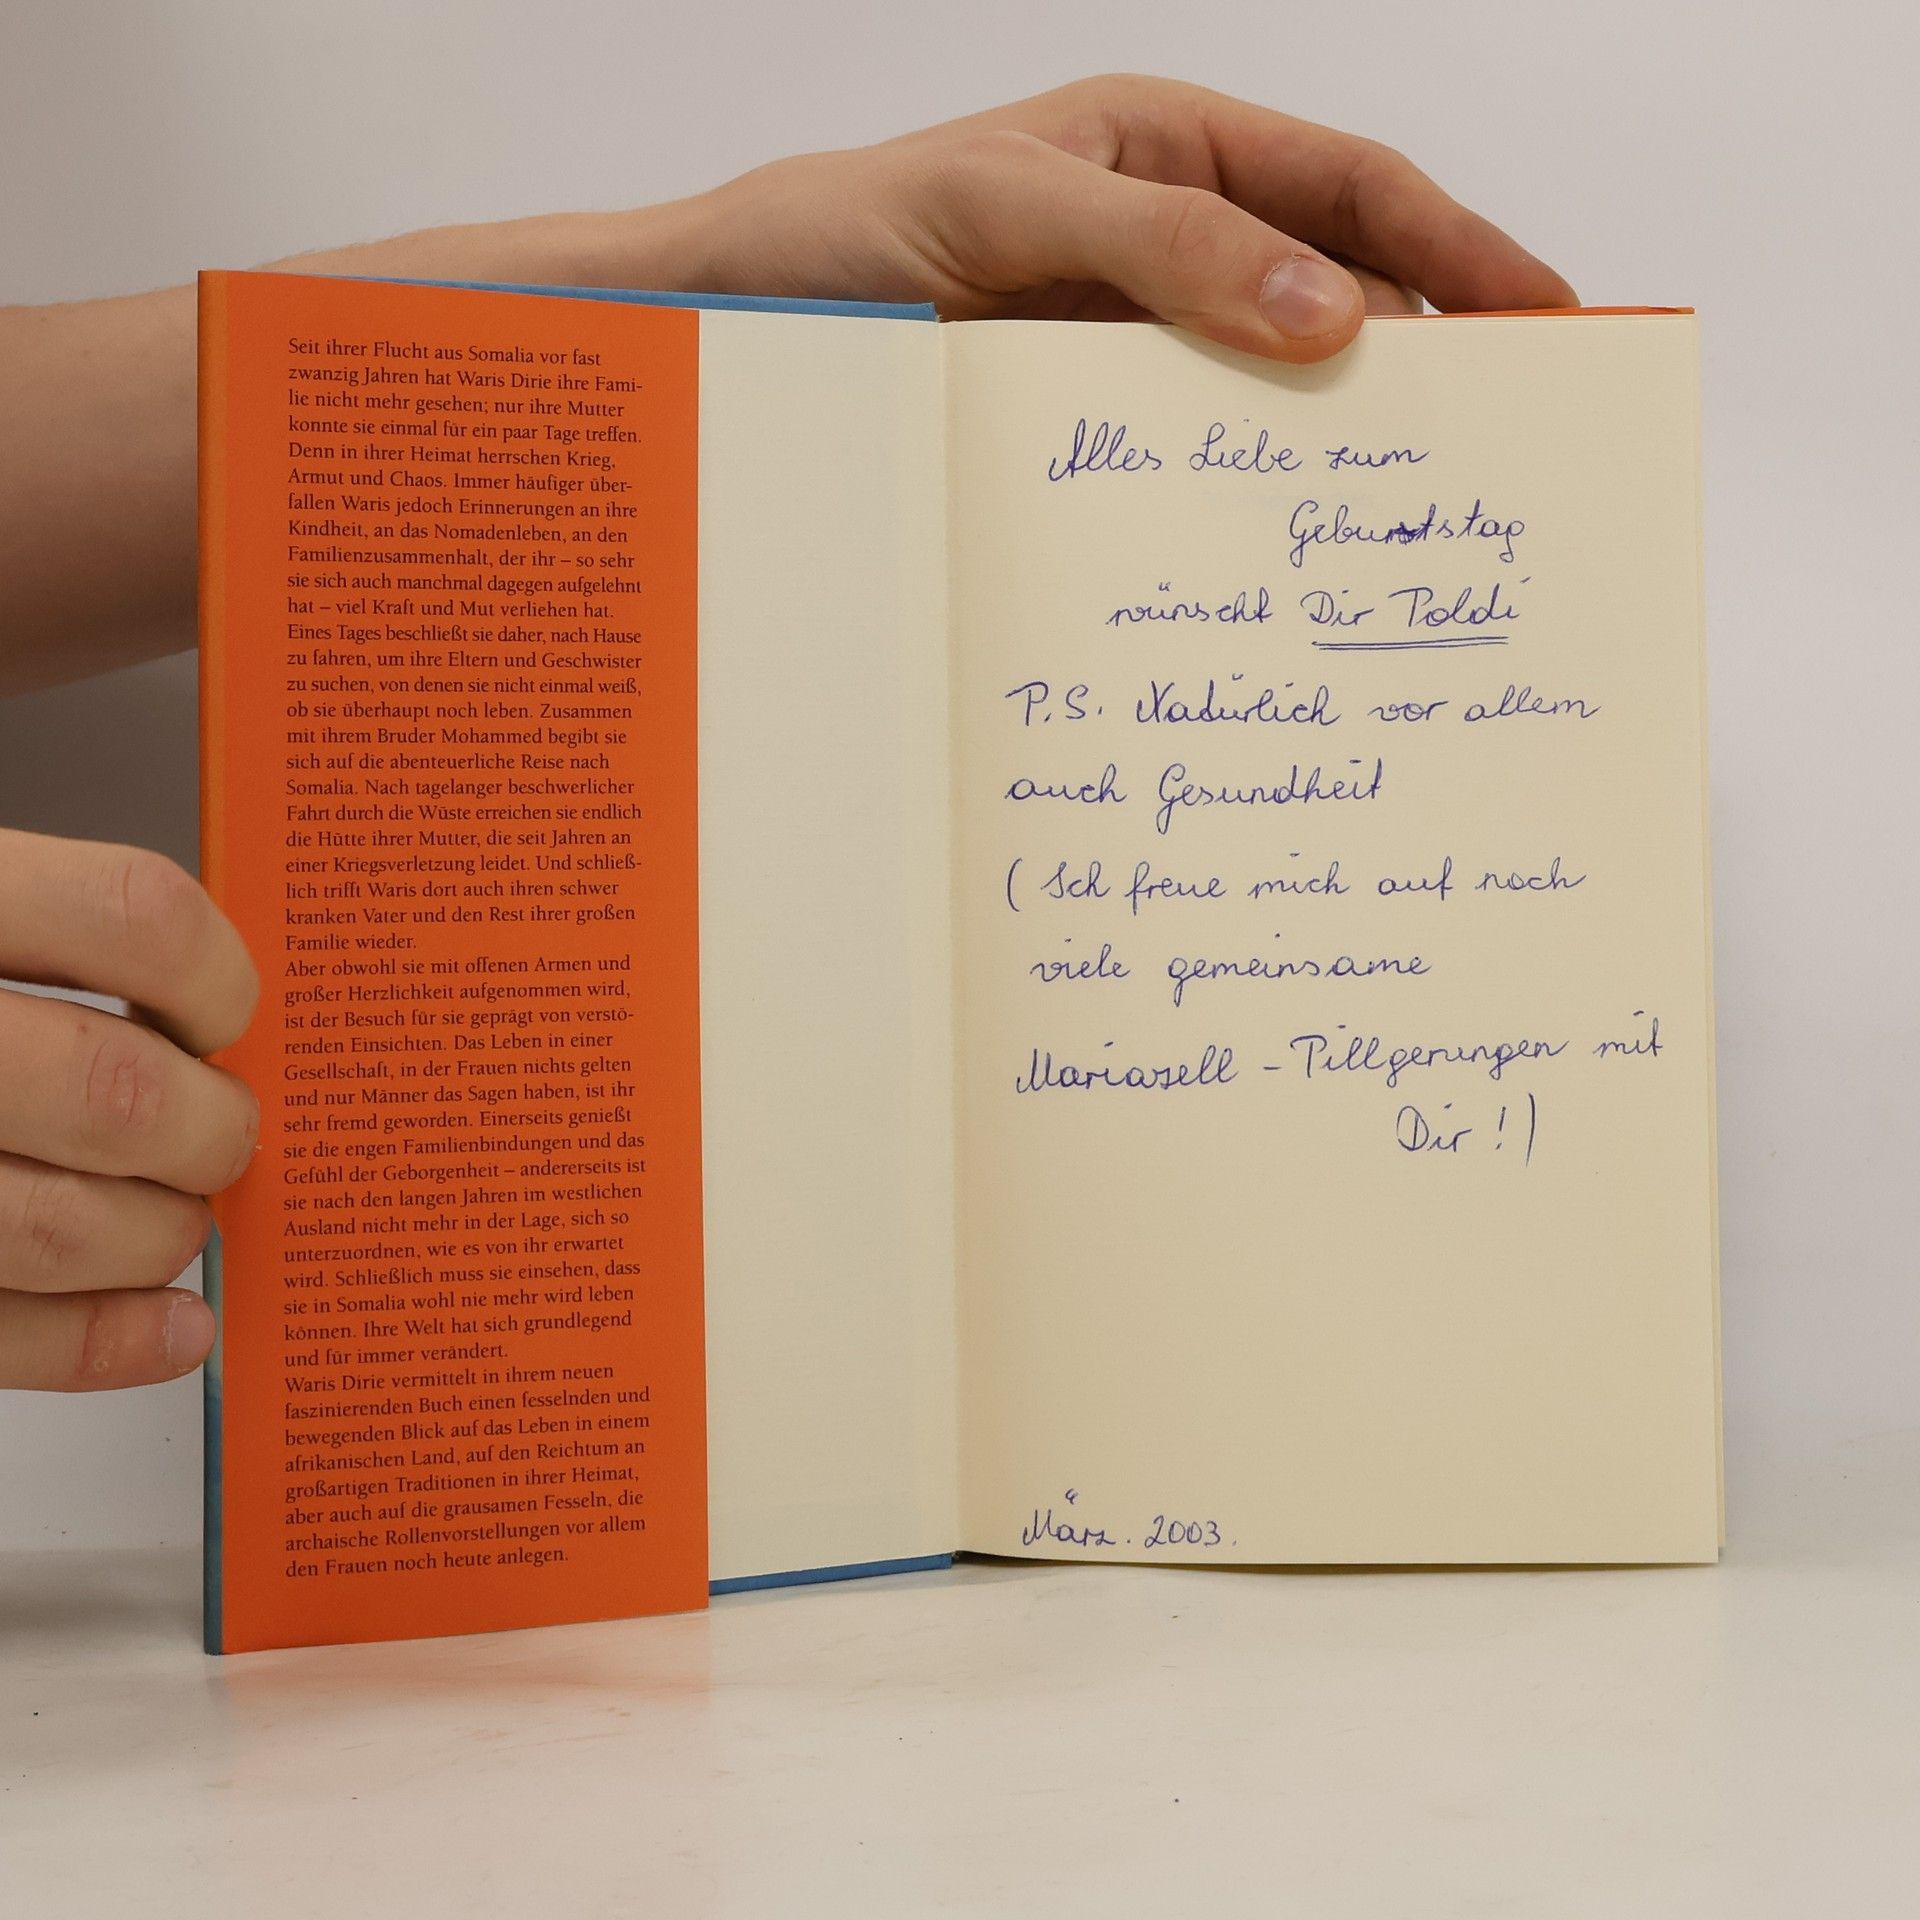 Seit ihrer Flucht aus Somalia vor fast
zwanzig Jahren hat Waris Dirie ihre Fami-
lie nicht mehr gesehen; nur ihre Mutter
konnte sie einmal für ein paar Tage treffen.
Denn in ihrer Heimat herrschen Krieg,
Armut und Chaos. Immer häufiger über-
fallen Waris jedoch Erinnerungen an ihre
Kindheit, an das Nomadenleben, an den
Familienzusammenhalt, der ihr – so sehr
sie sich auch manchmal dagegen aufgelehnt
hat – viel Kraft und Mut verliehen hat.
Eines Tages beschließt sie daher, nach Hause
zu fahren, um ihre Eltern und Geschwister
zu suchen, von denen sie nicht einmal weiß,
ob sie überhaupt noch leben. Zusammen
mit ihrem Bruder Mohammed begibt sie
sich auf die abenteuerliche Reise nach
Somalia. Nach tagelanger beschwerlicher
Fahrt durch die Wüste erreichen sie endlich
die Hütte ihrer Mutter, die seit Jahren an
einer Kriegsverletzung leidet. Und schließ-
lich trifft Waris dort auch ihren schwer
kranken Vater und den Rest ihrer großen
Familie wieder.
Aber obwohl sie mit offenen Armen und
großer Herzlichkeit aufgenommen wird,
ist der Besuch für sie geprägt von verstö-
renden Einsichten. Das Leben in einer
Gesellschaft, in der Frauen nichts gelten
und nur Männer das Sagen haben, ist ihr
sehr fremd geworden. Einerseits genießt
sie die engen Familienbindungen und das
Gefühl der Geborgenheit – andererseits ist
sie nach den langen Jahren im westlichen
Ausland nicht mehr in der Lage, sich so
unterzuordnen, wie es von ihr erwartet
wird. Schließlich muss sie einsehen, dass
sie in Somalia wohl nie mehr wird leben
können. Ihre Welt hat sich grundlegend
und für immer verändert.
Waris Dirie vermittelt in ihrem neuen
faszinierenden Buch einen fesselnden und
bewegenden Blick auf das Leben in einem
afrikanischen Land, auf den Reichtum an
großartigen Traditionen in ihrer Heimat,
aber auch auf die grausamen Fesseln, die
archaische Rollenvorstellungen vor allem
den Frauen noch heute anlegen.
Alles Liebe zum
Geburtstag
wünscht Dir Poldi
P.S. Natürlich vor allem
auch Gesundheit
( Ich freue mich auf noch
viele gemeinsame
Mariazell - Pillgerungen mit
Dir ! )
März. 2003.